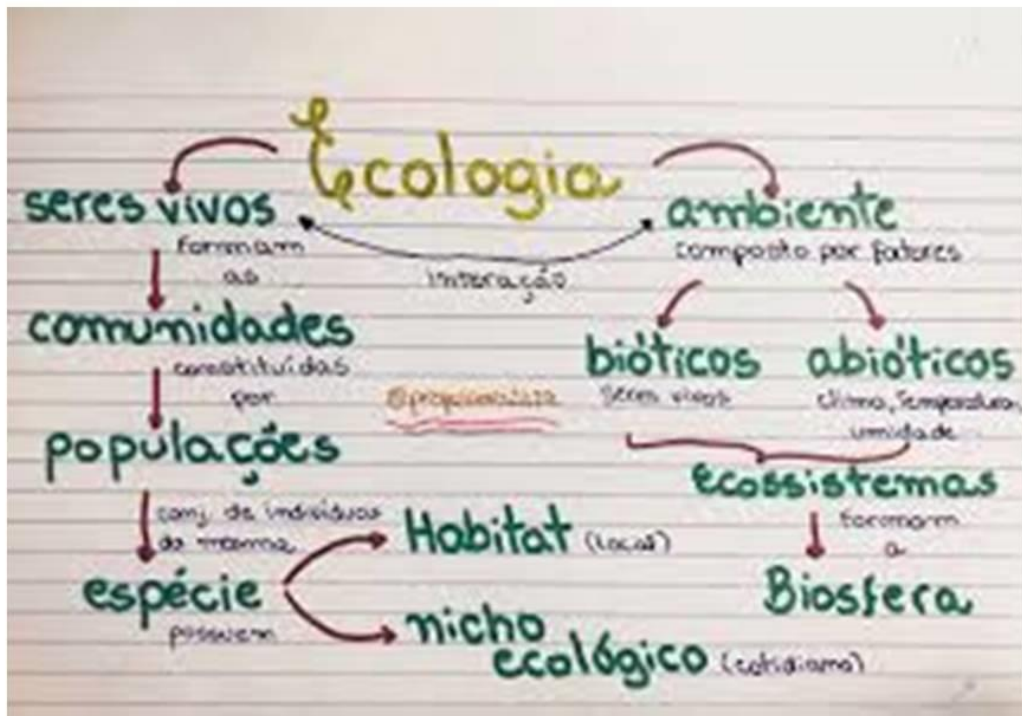 Ecologia
seres vivos
formam
as
comunidades
constituídas
por
populações
conj. de indivíduos
da mesma
espécie
possuem
Habitat (local)
nicho
ecológico (cotidiano)
interação
ambiente
composto por fatores
bióticos
seres vivos
abióticos
clima, temperatura,
umidade
Ecossistemas
formam
a
Biosfera